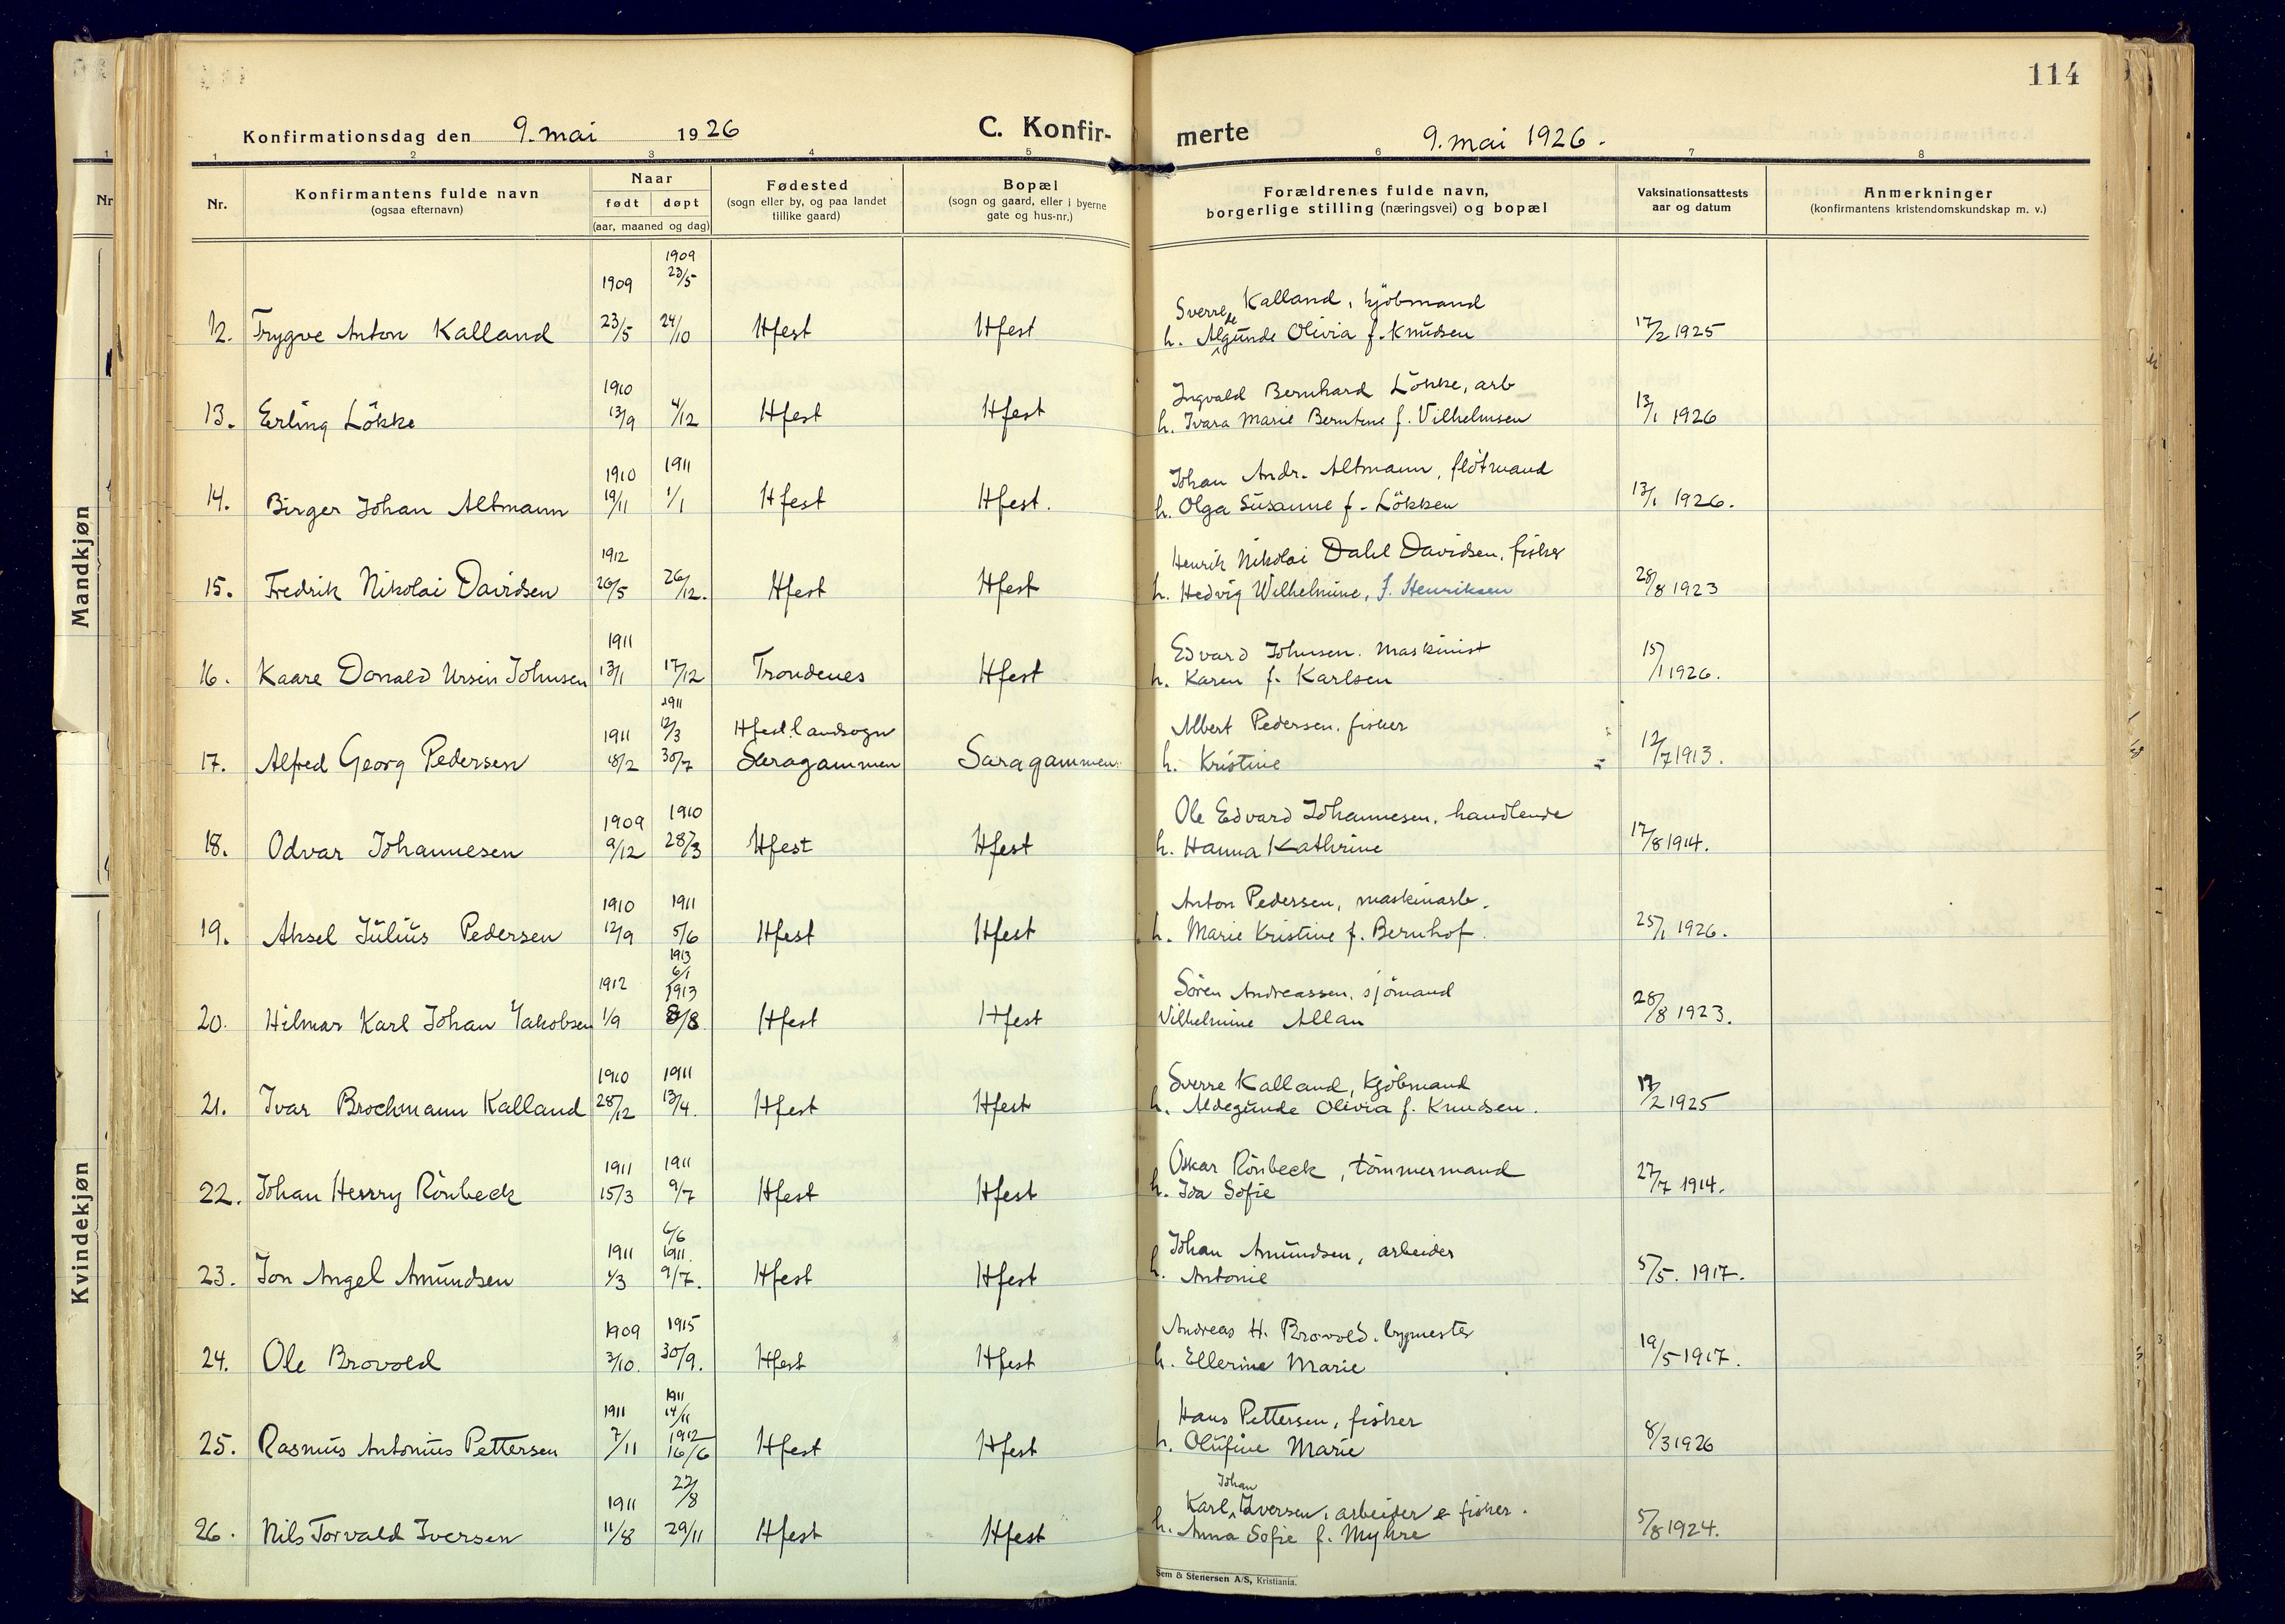 114
Konfirmationsdag den 9. mai 1926
C. Konfir-
merte
9. mai 1926.
1 2 3 4 5 6 7 8
Nr.
Konfirmantens fulde navn
(ogsaa efternavn)
Naar
født døpt
(aar, maaned og dag)
Fødested
(sogn eller by, og paa landet
tillike gaard)
Bopæl
(sogn og gaard, eller i byerne
gate og hus-nr.)
Forældrenes fulde navn,
borgerlige stilling (næringsvei) og bopæl
Vaksinationsattests
aar og datum
Anmerkninger
(konfirmantens kristendomskundskap m. v.)
Nr
Mandkjøn
Kvindekjøn
1909
1909 23/5 Sverre Kalland, kjöbmand
12. Trygve Anton Kalland 23/5 24/10 Hfest Hfest h. Aldegunde Olivia f. Knudsen 17/2 1925
1910 Ingvald Bernhard Lökke, arb
13. Erling Lökke 13/9 4/12 Hfest Hfest h. Ivara Marie Berntine f. Vilhelmsen 13/1 1926
1910 1911 Johan Andr. Altmann, flötmand
14. Birger Johan Altmann 19/11 1/1 Hfest Hfest. h. Olga Susanne f. Lökken 13/1 1926.
1912 Henrik Nikolai Dahl Davidsen, fisker
15. Fredrik Nikolai Davidsen 26/5 26/12. Hfest Hfest h. Hedvig Wilhelmine, f. Henriksen 28/8 1923
1911 Edvard Johnsen. Maskinist
16. Kaare Donald Ursin Johnsen 13/1 17/12 Trondenes Hfest h. Karen f. Karlsen 15/1 1926.
1911
1911 12/3 Hfest. landsogn Albert Pedersen. fisker
17. Alfred Georg Pedersen 18/2 30/7 Saragammen Saragammen. h. Kristine 12/7 1913.
1909 1910 Ole Edvard Johannesen, handlende
18. Odvar Johannesen 9/12 28/3 Hfest Hfest h. Hanna Kathrine 17/8 1914.
1910 1911 Anton Pedersen, maskinarb.
19. Aksel Julius Pedersen 12/9 5/6 Hfest Hfest h. Marie Kristine f. Bernhof. 25/1 1926.
1913
6/1
1912 1913 Sören Andreassen, sjömand
20. Hilmar Karl Johan Jakobsen 1/9 8/8 Hfest Hfest Vilhelmine Allan 28/8 1923.
1910 1911 Sverre Kalland, Kjöbmand
21. Ivar Brochmann Kalland 28/12 13/4. Hfest Hfest h. Aldegunde Olivia f. Knudsen. 17/2 1925
1911 1911 Oskar Rönbeck, tömmermand
22. Johan Henry Rönbeck 15/3 9/7 Hfest Hfest h. Ida Sofie 27/7 1914.
6/6
1911 1911. Johan Amundsen, arbeider
23. Jon Angel Amundsen 1/3 9/7. Hfest Hfest h. Antonie 5/5. 1917.
1909 1915 Andreas H. Brovold. bypmester
24. Ole Brovold 3/10. 30/9. Hfest Hfest h. Ellerine Marie 19/5 1917.
1911
1911 14/11 Hans Pettersen, fisker
1912
25. Rasmus Antonius Pettersen 7/11 16/6 Hfest Hfest h. Olufine Marie 8/3 1926
22/8 Johan
1911 Karl, Iversen, arbeider & fisker.
26. Nils Torvald Iversen 11/8 29/11 Hfest Hfest h. Anna Sofie f. Myhre 5/8 1924.
Sem & Stenersen A/S, Kristiania.